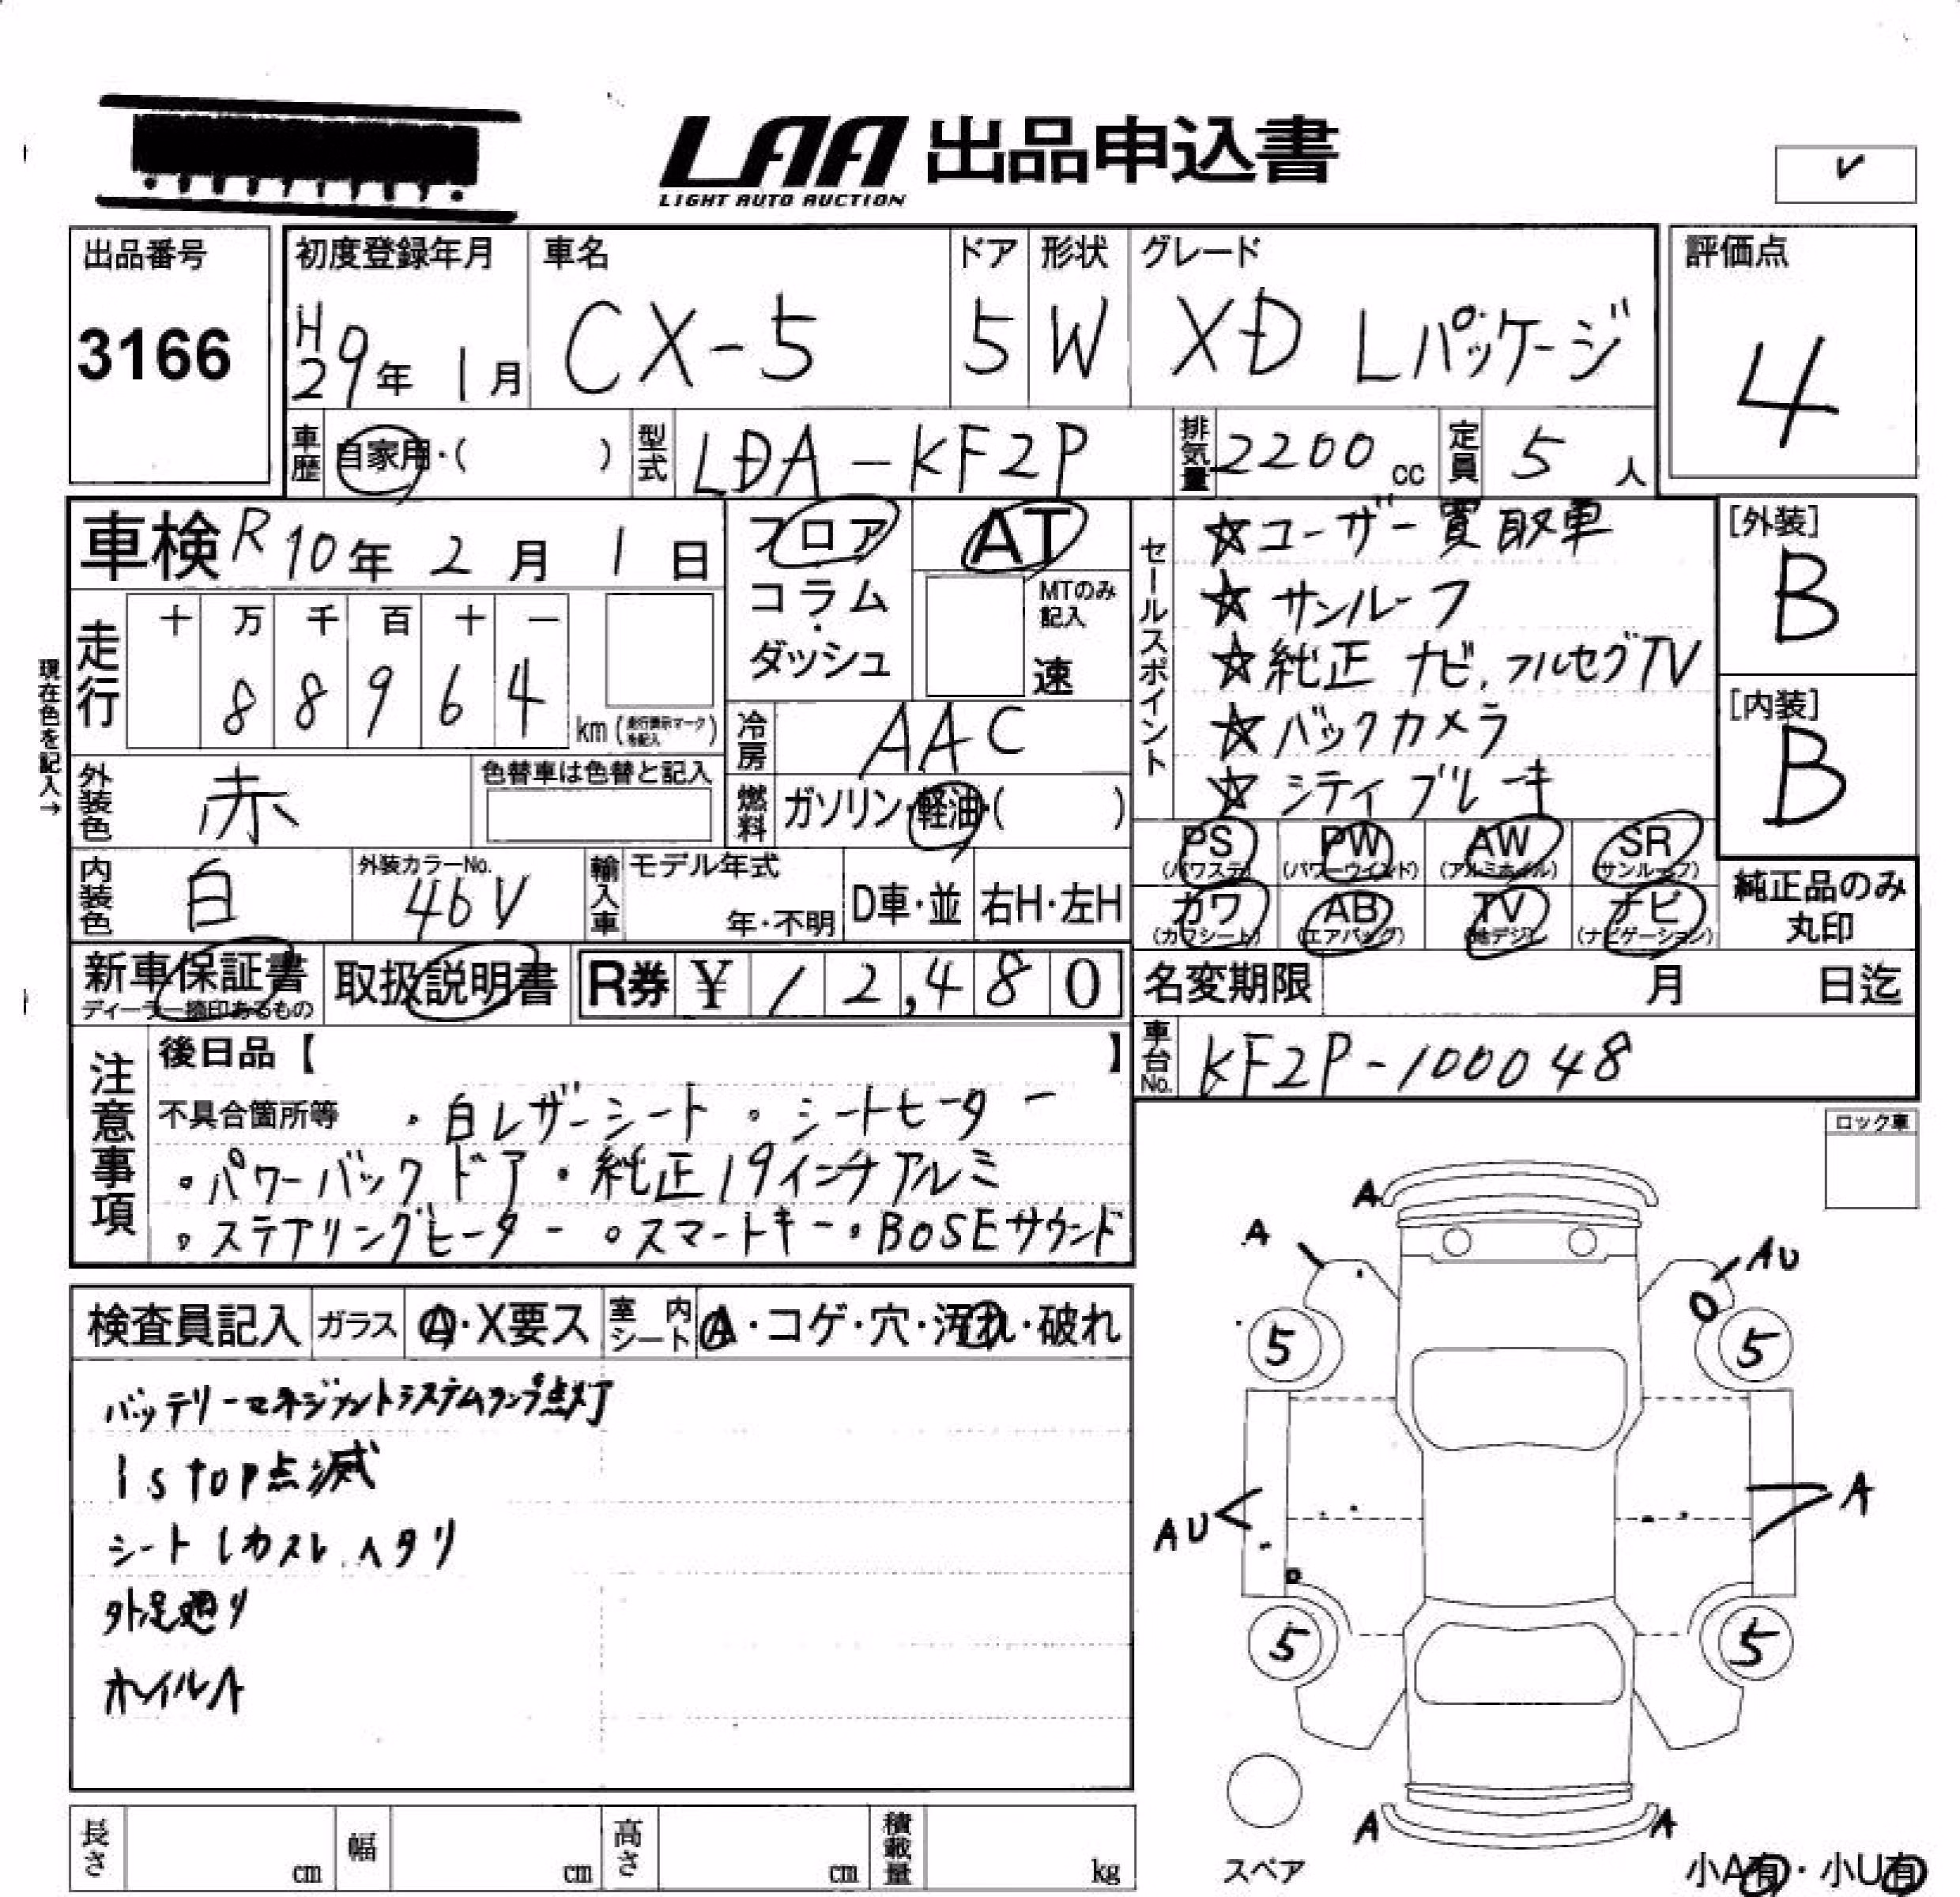 LAA 出品申込書
LIGHT AUTO AUCTION
出品番号
3166
初度登録年月
H29年 1月
車名
CX-5
ドア
5
形状
W
グレード
XD Lパッケージ
評価点
4
車歴 自家用・( )
型式 LDA-KF2P
排気量 2200 cc
定員 5 人
車検 R10年 2月 1日
フロア
コラム
・
ダッシュ
AT
MTのみ記入
速
セールスポイント
☆ユーザー買取車
☆サンルーフ
☆純正ナビ.フルセグTV
☆バックカメラ
☆シティブレーキ
[外装]
B
[内装]
B
現在色を記入→
走行
十 万 千 百 十 一
8 8 9 6 4
km (走行表示マークを記入)
冷房 AAC
燃料 ガソリン・軽油・( )
外装色 赤
色替車は色替と記入
内装色 白
外装カラーNo.
46V
輸入車
モデル年式
年・不明
D車・並
右H・左H
PS (パワステ)
PW (パワーウインド)
AW (アルミホイル)
SR (サンルーフ)
カワ (カワシート)
AB (エアバッグ)
TV (地デジ)
ナビ (ナビゲーション)
純正品のみ
丸印
新車保証書
ディーラー捺印あるもの
取扱説明書
R券 ¥ 12,480
名変期限 月 日迄
車台No. KF2P-100048
注意事項
後日品【 】
不具合箇所等 ・白レザーシート ・シートヒーター
・パワーバックドア ・純正19インチアルミ
・ステアリングヒーター ・スマートキー ・BOSEサウンド
ロック車
検査員記入
ガラス A・X要ス
室内シート A・コゲ・穴・汚れ・破れ
バッテリーマネジメントシステムランプ点灯
i stop点滅
シート
ヘタリ
外足廻り
ホイルA
A
A
AU
5
5
AU
A
5
5
A
A
スペア
小A有・小U有
長さ cm
幅 cm
高さ cm
積載量 kg